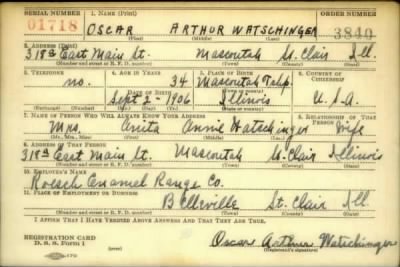 SERIAL NUMBER 1. NAME (Print) ORDER NUMBER
01718 OSCAR ARTHUR WATSCHINGER 3840
(First) (Middle) (Last)
2. ADDRESS (Print)
318a East Main St. Mascoutah St. Clair Ill.
(Number and street or R. F. D. number) (Town) (County) (State)
3. TELEPHONE 4. AGE IN YEARS 5. PLACE OF BIRTH 6. COUNTRY OF CITIZENSHIP
no. 34 Mascoutah Twp.
DATE OF BIRTH (Town or county)
Sept 2 - 1906 Illinois U.S.A.
(Exchange) (Number) (Mo.) (Day) (Yr.) (State or country)
7. NAME OF PERSON WHO WILL ALWAYS KNOW YOUR ADDRESS 8. RELATIONSHIP OF THAT PERSON
Mrs. Anita Annie Watschinger Wife
(Mr., Mrs., Miss) (First) (Middle) (Last)
9. ADDRESS OF THAT PERSON
318a East Main St. Mascoutah St. Clair Illinois
(Number and street or R. F. D. number) (Town) (County) (State)
10. EMPLOYER'S NAME
Roesch Enamel Range Co.
11. PLACE OF EMPLOYMENT OR BUSINESS
Belleville St. Clair Ill.
(Number and street or R. F. D. number) (Town) (County) (State)
I AFFIRM THAT I HAVE VERIFIED ABOVE ANSWERS AND THAT THEY ARE TRUE.
REGISTRATION CARD
D. S. S. Form 1 Oscar Arthur Watschinger
(Registrant's signature)